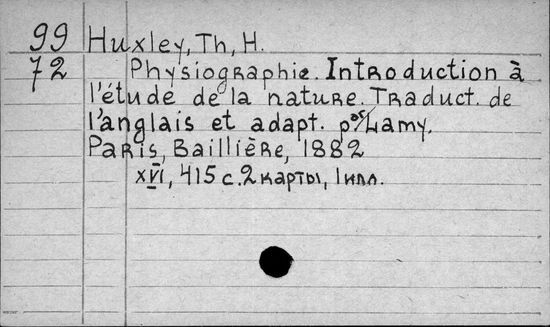 99 Huxley, Th, H.
72 Physiographie. Introduction à
l'étude de la nature. Traduct. de
l'anglais et adapt. par Lamy.
Paris, Baillière, 1882
XVI, 415 с. 2 карты, 1 илл.